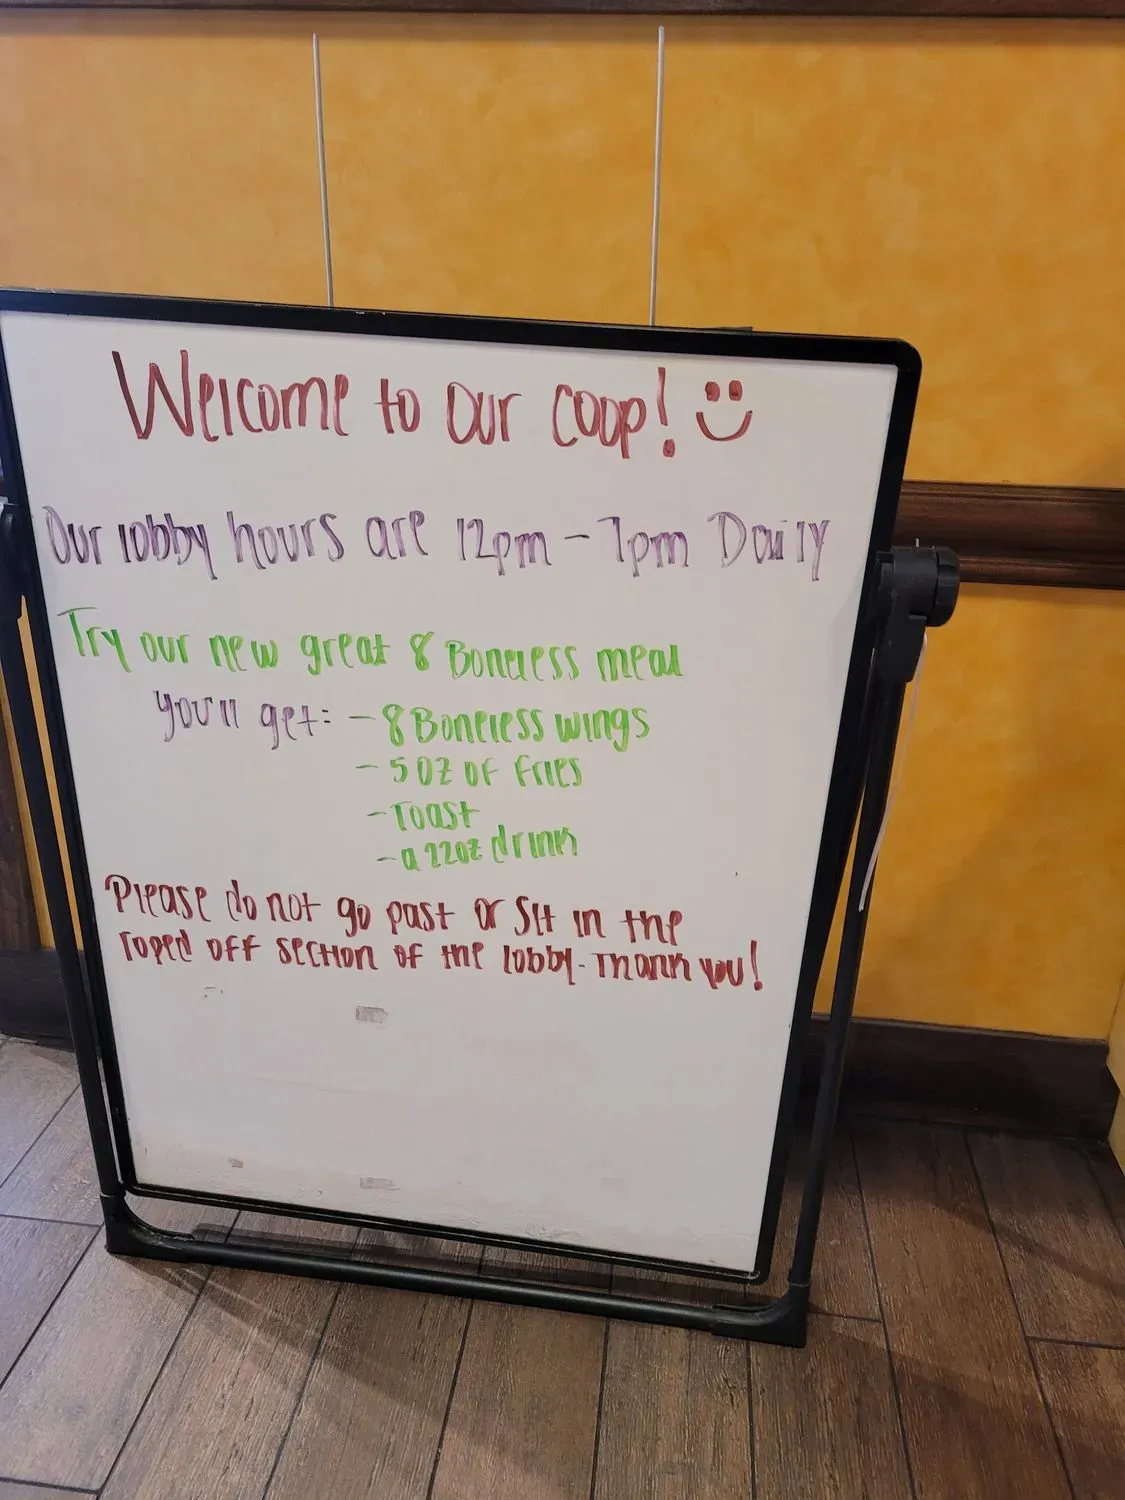 Welcome to our coop!
Our lobby hours are 12pm - 7pm Daily
Try our new great 8 Boneless meal
You'll get: - 8 Boneless wings
- 5 oz of fries
- Toast
- a 22oz drink
Please do not go past or sit in the
roped off section of the lobby. Thank you!